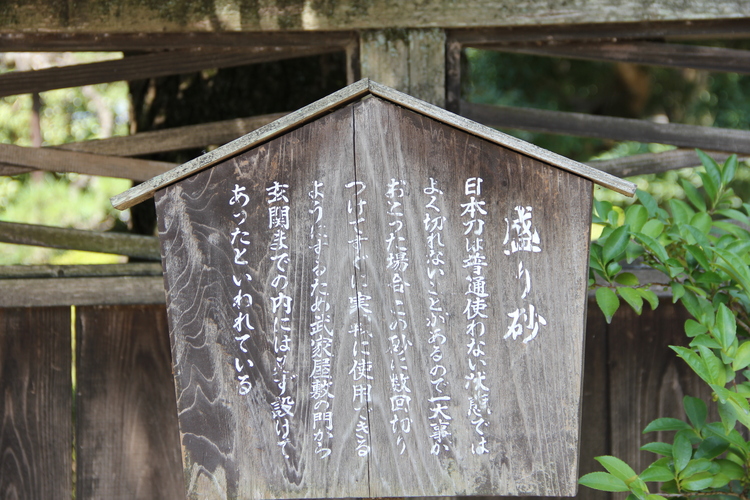 盛り砂
日本刀は普通使わない状態では
よく切れないことがあるので一大事が
おこった場合この砂に数回切り
つけてすぐに実戦に使用できる
ようにするため武家屋敷の門から
玄関までの内には必ず設けて
あったといわれている